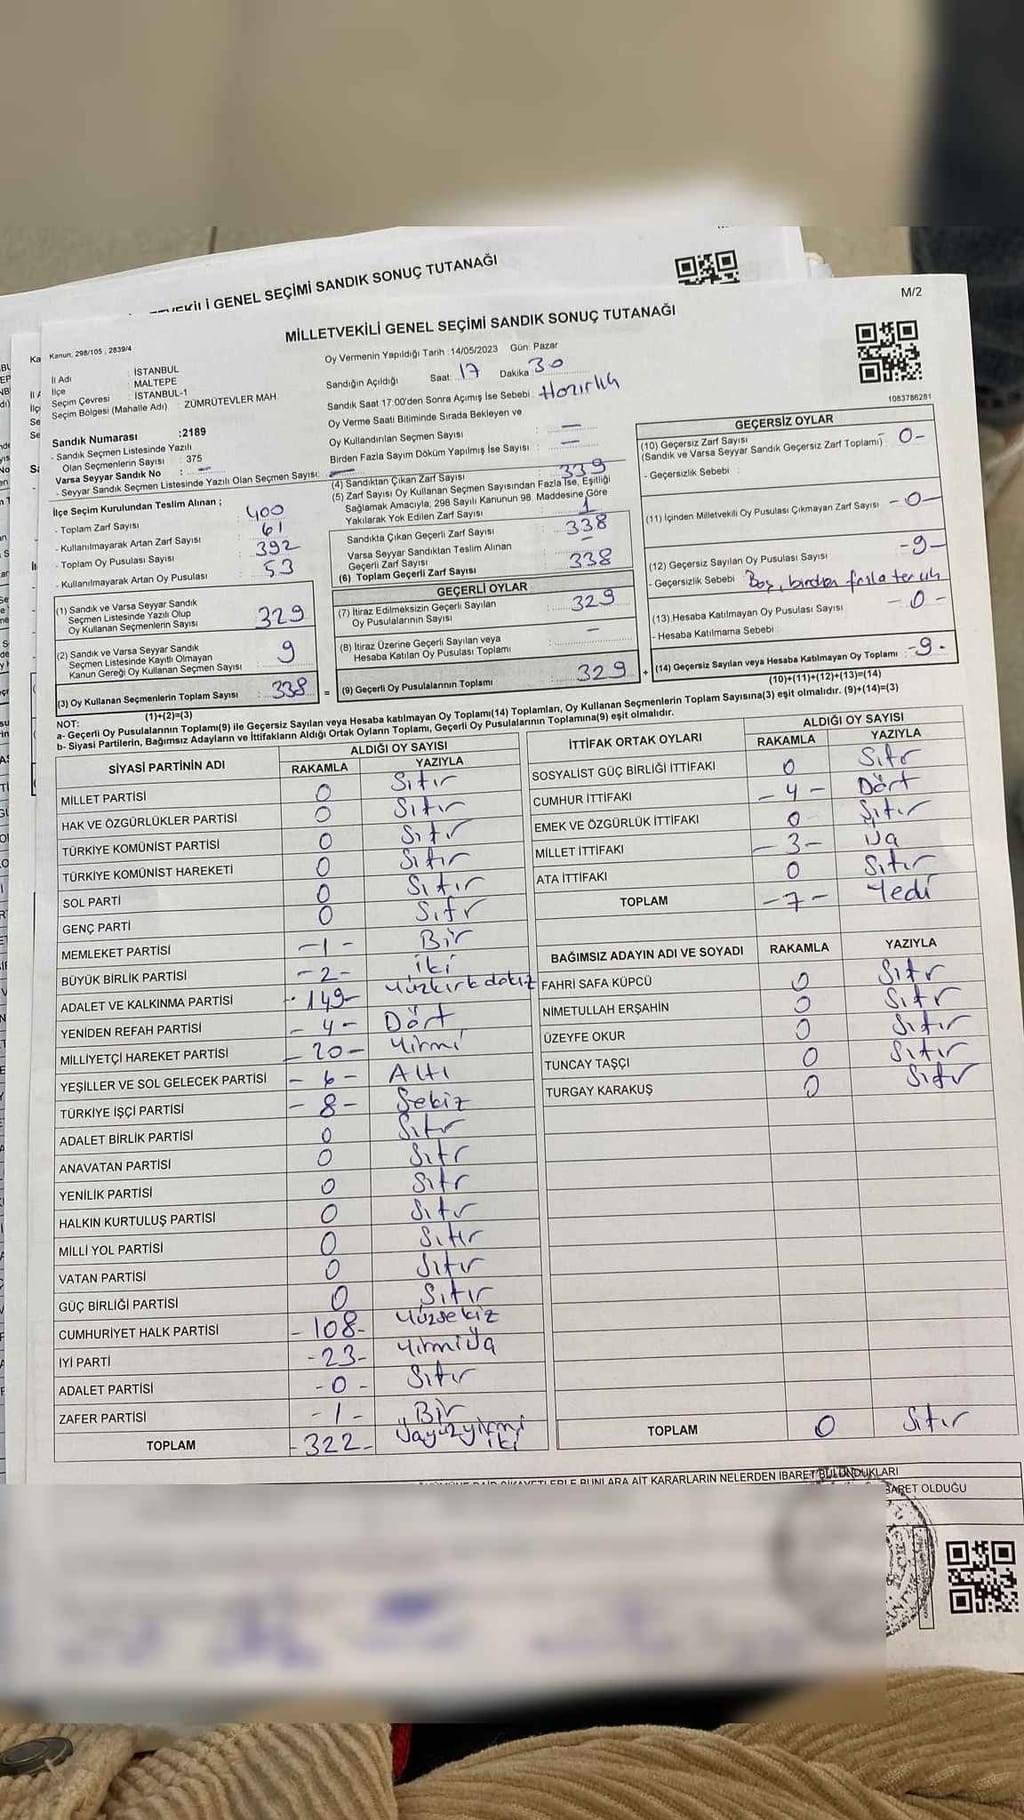 VEKİLİ GENEL SEÇİMİ SANDIK SONUÇ TUTANAĞI
M/2
MİLLETVEKİLİ GENEL SEÇİMİ SANDIK SONUÇ TUTANAĞI
Kanun, 298/105 , 2839/4
İl Adı : İSTANBUL
İlçe : MALTEPE
Seçim Çevresi : İSTANBUL-1
Seçim Bölgesi (Mahalle Adı) : ZÜMRÜTEVLER MAH.
Oy Vermenin Yapıldığı Tarih : 14/05/2023 Gün: Pazar
Sandığın Açıldığı Saat: 17 Dakika 30
Sandık Saat 17:00'den Sonra Açımış İse Sebebi : Hazırlık
Oy Verme Saati Bitiminde Sırada Bekleyen ve
Oy Kullandırılan Seçmen Sayısı : —
Birden Fazla Sayım Döküm Yapılmış İse Sayısı : —
1083786281
Sandık Numarası :2189
- Sandık Seçmen Listesinde Yazılı
Olan Seçmenlerin Sayısı : 375
Varsa Seyyar Sandık No : —
- Seyyar Sandık Seçmen Listesinde Yazılı Olan Seçmen Sayısı: —
İlçe Seçim Kurulundan Teslim Alınan ;
- Toplam Zarf Sayısı : 400
- Kullanılmayarak Artan Zarf Sayısı : 61
- Toplam Oy Pusulası Sayısı : 392
- Kullanılmayarak Artan Oy Pusulası : 53
(1) Sandık ve Varsa Seyyar Sandık
Seçmen Listesinde Yazılı Olup
Oy Kullanan Seçmenlerin Sayısı : 329
(2) Sandık ve Varsa Seyyar Sandık
Seçmen Listesinde Kayıtlı Olmayan
Kanun Gereği Oy Kullanan Seçmen Sayısı : 9
(3) Oy Kullanan Seçmenlerin Toplam Sayısı : 338
(1)+(2)=(3)
(4) Sandıktan Çıkan Zarf Sayısı : 339
(5) Zarf Sayısı Oy Kullanan Seçmen Sayısından Fazla İse, Eşitliği
Sağlamak Amacıyla; 298 Sayılı Kanunun 98. Maddesine Göre
Yakılarak Yok Edilen Zarf Sayısı : 1
Sandıkta Çıkan Geçerli Zarf Sayısı : 338
Varsa Seyyar Sandıktan Teslim Alınan
Geçerli Zarf Sayısı : —
(6) Toplam Geçerli Zarf Sayısı : 338
GEÇERLİ OYLAR
(7) İtiraz Edilmeksizin Geçerli Sayılan
Oy Pusulalarının Sayısı : 329
(8) İtiraz Üzerine Geçerli Sayılan veya
Hesaba Katılan Oy Pusulası Toplamı : —
= (9) Geçerli Oy Pusulalarının Toplamı : 329 +
GEÇERSİZ OYLAR
(10) Geçersiz Zarf Sayısı
(Sandık ve Varsa Seyyar Sandık Geçersiz Zarf Toplamı) : -0-
- Geçersizlik Sebebi :
(11) İçinden Milletvekili Oy Pusulası Çıkmayan Zarf Sayısı : -0-
(12) Geçersiz Sayılan Oy Pusulası Sayısı : -9-
- Geçersizlik Sebebi : Boş, birden fazla tercih
(13) Hesaba Katılmayan Oy Pusulası Sayısı : -0-
- Hesaba Katılmama Sebebi :
(14) Geçersiz Sayılan veya Hesaba Katılmayan Oy Toplamı : -9-
(10)+(11)+(12)+(13)=(14)
NOT:
a- Geçerli Oy Pusulalarının Toplamı(9) ile Geçersiz Sayılan veya Hesaba katılmayan Oy Toplamı(14) Toplamları, Oy Kullanan Seçmenlerin Toplam Sayısına(3) eşit olmalıdır. (9)+(14)=(3)
b- Siyasi Partilerin, Bağımsız Adayların ve İttifakların Aldığı Ortak Oyların Toplamı, Geçerli Oy Pusulalarının Toplamına(9) eşit olmalıdır.
SİYASİ PARTİNİN ADI ALDIĞI OY SAYISI
RAKAMLA YAZIYLA
MİLLET PARTİSİ 0 Sıfır
HAK VE ÖZGÜRLÜKLER PARTİSİ 0 Sıfır
TÜRKİYE KOMÜNİST PARTİSİ 0 Sıfır
TÜRKİYE KOMÜNİST HAREKETİ 0 Sıfır
SOL PARTİ 0 Sıfır
GENÇ PARTİ 0 Sıfır
MEMLEKET PARTİSİ -1- Bir
BÜYÜK BİRLİK PARTİSİ -2- İki
ADALET VE KALKINMA PARTİSİ -149- Yüzkırkdokuz
YENİDEN REFAH PARTİSİ -4- Dört
MİLLİYETÇİ HAREKET PARTİSİ -20- Yirmi
YEŞİLLER VE SOL GELECEK PARTİSİ -6- Altı
TÜRKİYE İŞÇİ PARTİSİ -8- Sekiz
ADALET BİRLİK PARTİSİ 0 Sıfır
ANAVATAN PARTİSİ 0 Sıfır
YENİLİK PARTİSİ 0 Sıfır
HALKIN KURTULUŞ PARTİSİ 0 Sıfır
MİLLİ YOL PARTİSİ 0 Sıfır
VATAN PARTİSİ 0 Sıfır
GÜÇ BİRLİĞİ PARTİSİ 0 Sıfır
CUMHURİYET HALK PARTİSİ -108- Yüzsekiz
İYİ PARTİ -23- Yirmiüç
ADALET PARTİSİ -0- Sıfır
ZAFER PARTİSİ -1- Bir
TOPLAM -322- Üçyüzyirmi iki
İTTİFAK ORTAK OYLARI ALDIĞI OY SAYISI
RAKAMLA YAZIYLA
SOSYALİST GÜÇ BİRLİĞİ İTTİFAKI 0 Sıfır
CUMHUR İTTİFAKI -4- Dört
EMEK VE ÖZGÜRLÜK İTTİFAKI 0 Sıfır
MİLLET İTTİFAKI -3- Üç
ATA İTTİFAKI 0 Sıfır
TOPLAM -7- Yedi
BAĞIMSIZ ADAYIN ADI VE SOYADI RAKAMLA YAZIYLA
FAHRİ SAFA KÜPCÜ 0 Sıfır
NİMETULLAH ERŞAHİN 0 Sıfır
ÜZEYFE OKUR 0 Sıfır
TUNCAY TAŞÇI 0 Sıfır
TURGAY KARAKUŞ 0 Sıfır
TOPLAM 0 Sıfır
BUNLARA AİT KARARLARIN NELERDEN İBARET BULUNDUKLARI
İBARET OLDUĞU